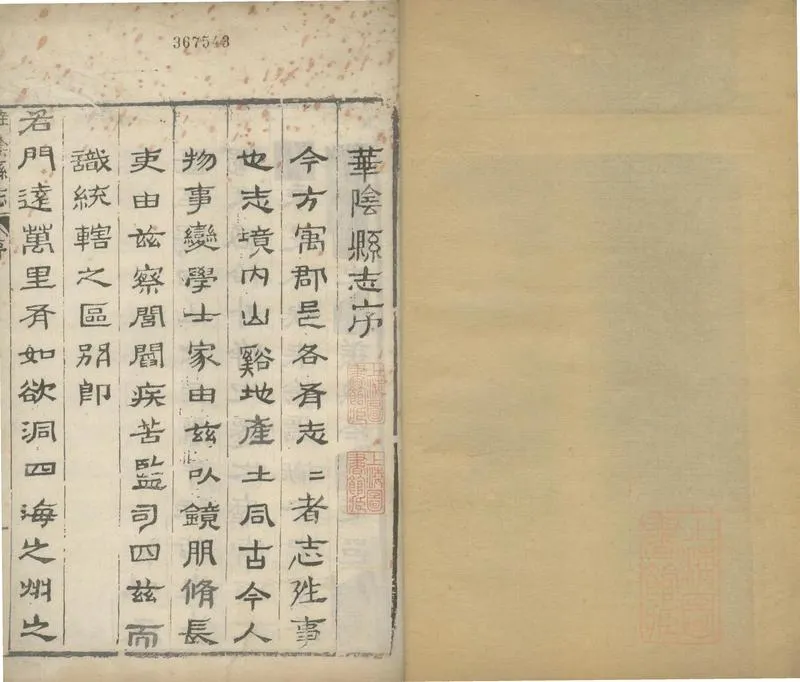 367543
華陰縣志序
今方寓郡邑各有志〻者志往事
也志境内山谿地產土同古今人
物事變學士家由茲以鏡朋脩長
吏由茲察閭閻疾苦監司四茲而
識統轄之區別即
君門達萬里有如欲洞四海之州之
華陰縣志 序
上海圖書館藏
上海圖書館藏
上海圖書館藏